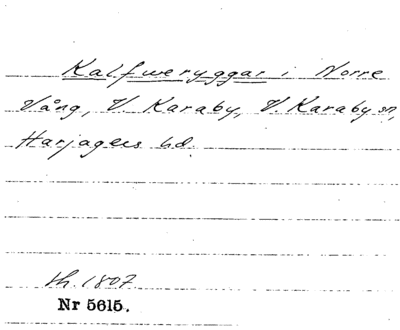 Kalfweryggar i Norre
Vång, V. Karaby, V. Karaby sn,
Harjagers hd.
sk. 1807
Nr 5615.